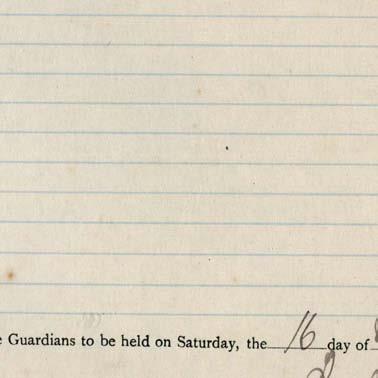 Guardians to be held on Saturday, the 16 day of